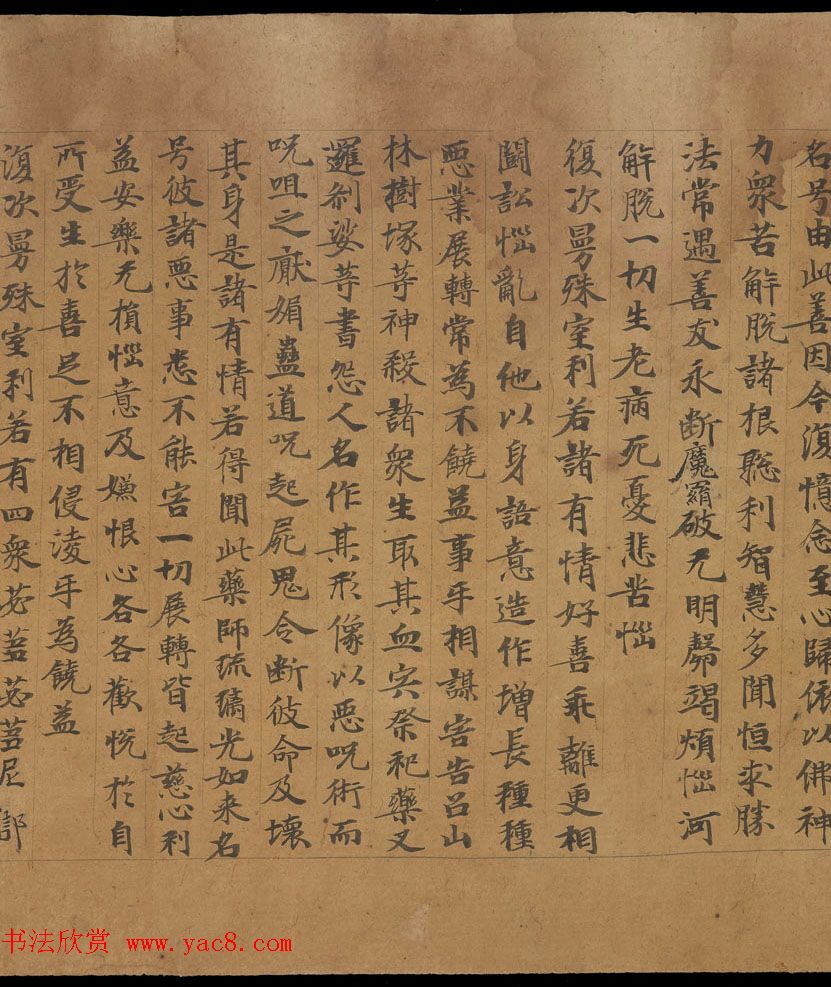 名号由此善因今復憶念至心歸依以佛神
力衆苦解脫諸根聦利智慧多聞恒求勝
法常遇善友永断魔羂破无明㲉竭煩惱河
解脫一切生老病死憂悲苦惱
復次曼殊室利若諸有情好喜乖離更相
鬪訟惱亂自他以身語意造作增長種種
惡業展轉常為不饒益事乎相謀害告召山
林樹塚等神殺諸衆生取其血宍祭祀藥叉
邏剎娑等書怨人名作其形像以惡呪術而
呪咀之厭媚蠱道呪起屍鬼令断彼命及壞
其身是諸有情若得聞此藥師琉璃光如来名
号彼諸惡事悉不能害一切展轉皆起慈心利
益安樂无損惱意及嫌恨心各各歡悅於自
所受生於喜足不相侵淩乎為饒益
復次曼殊室利若有四衆苾蒭苾蒭尼鄔
书法欣赏 www.yac8.com